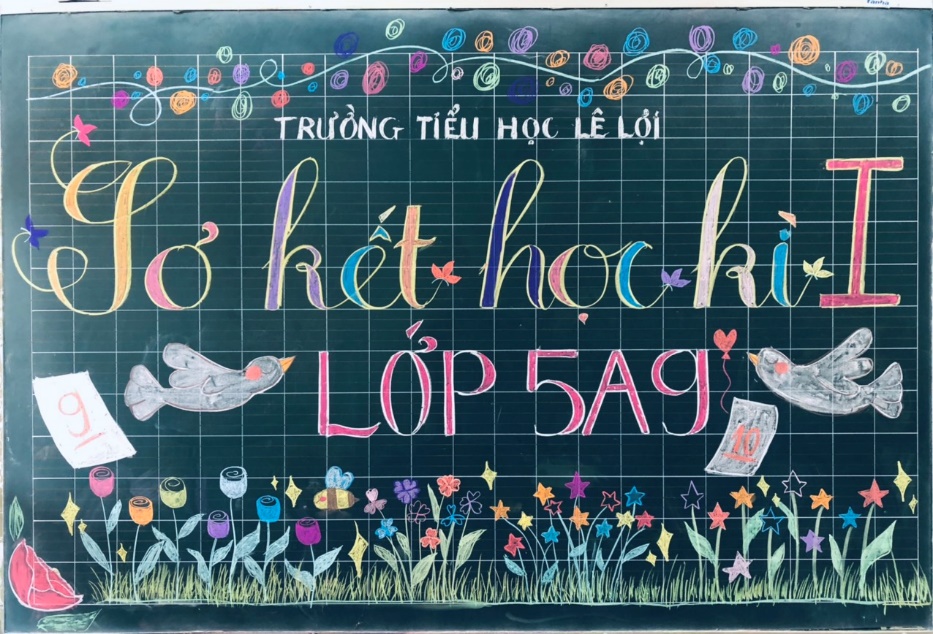 TRƯỜNG TIỂU HỌC LÊ LỢI
Sơ kết học kì I
LỚP 5A9
9
10